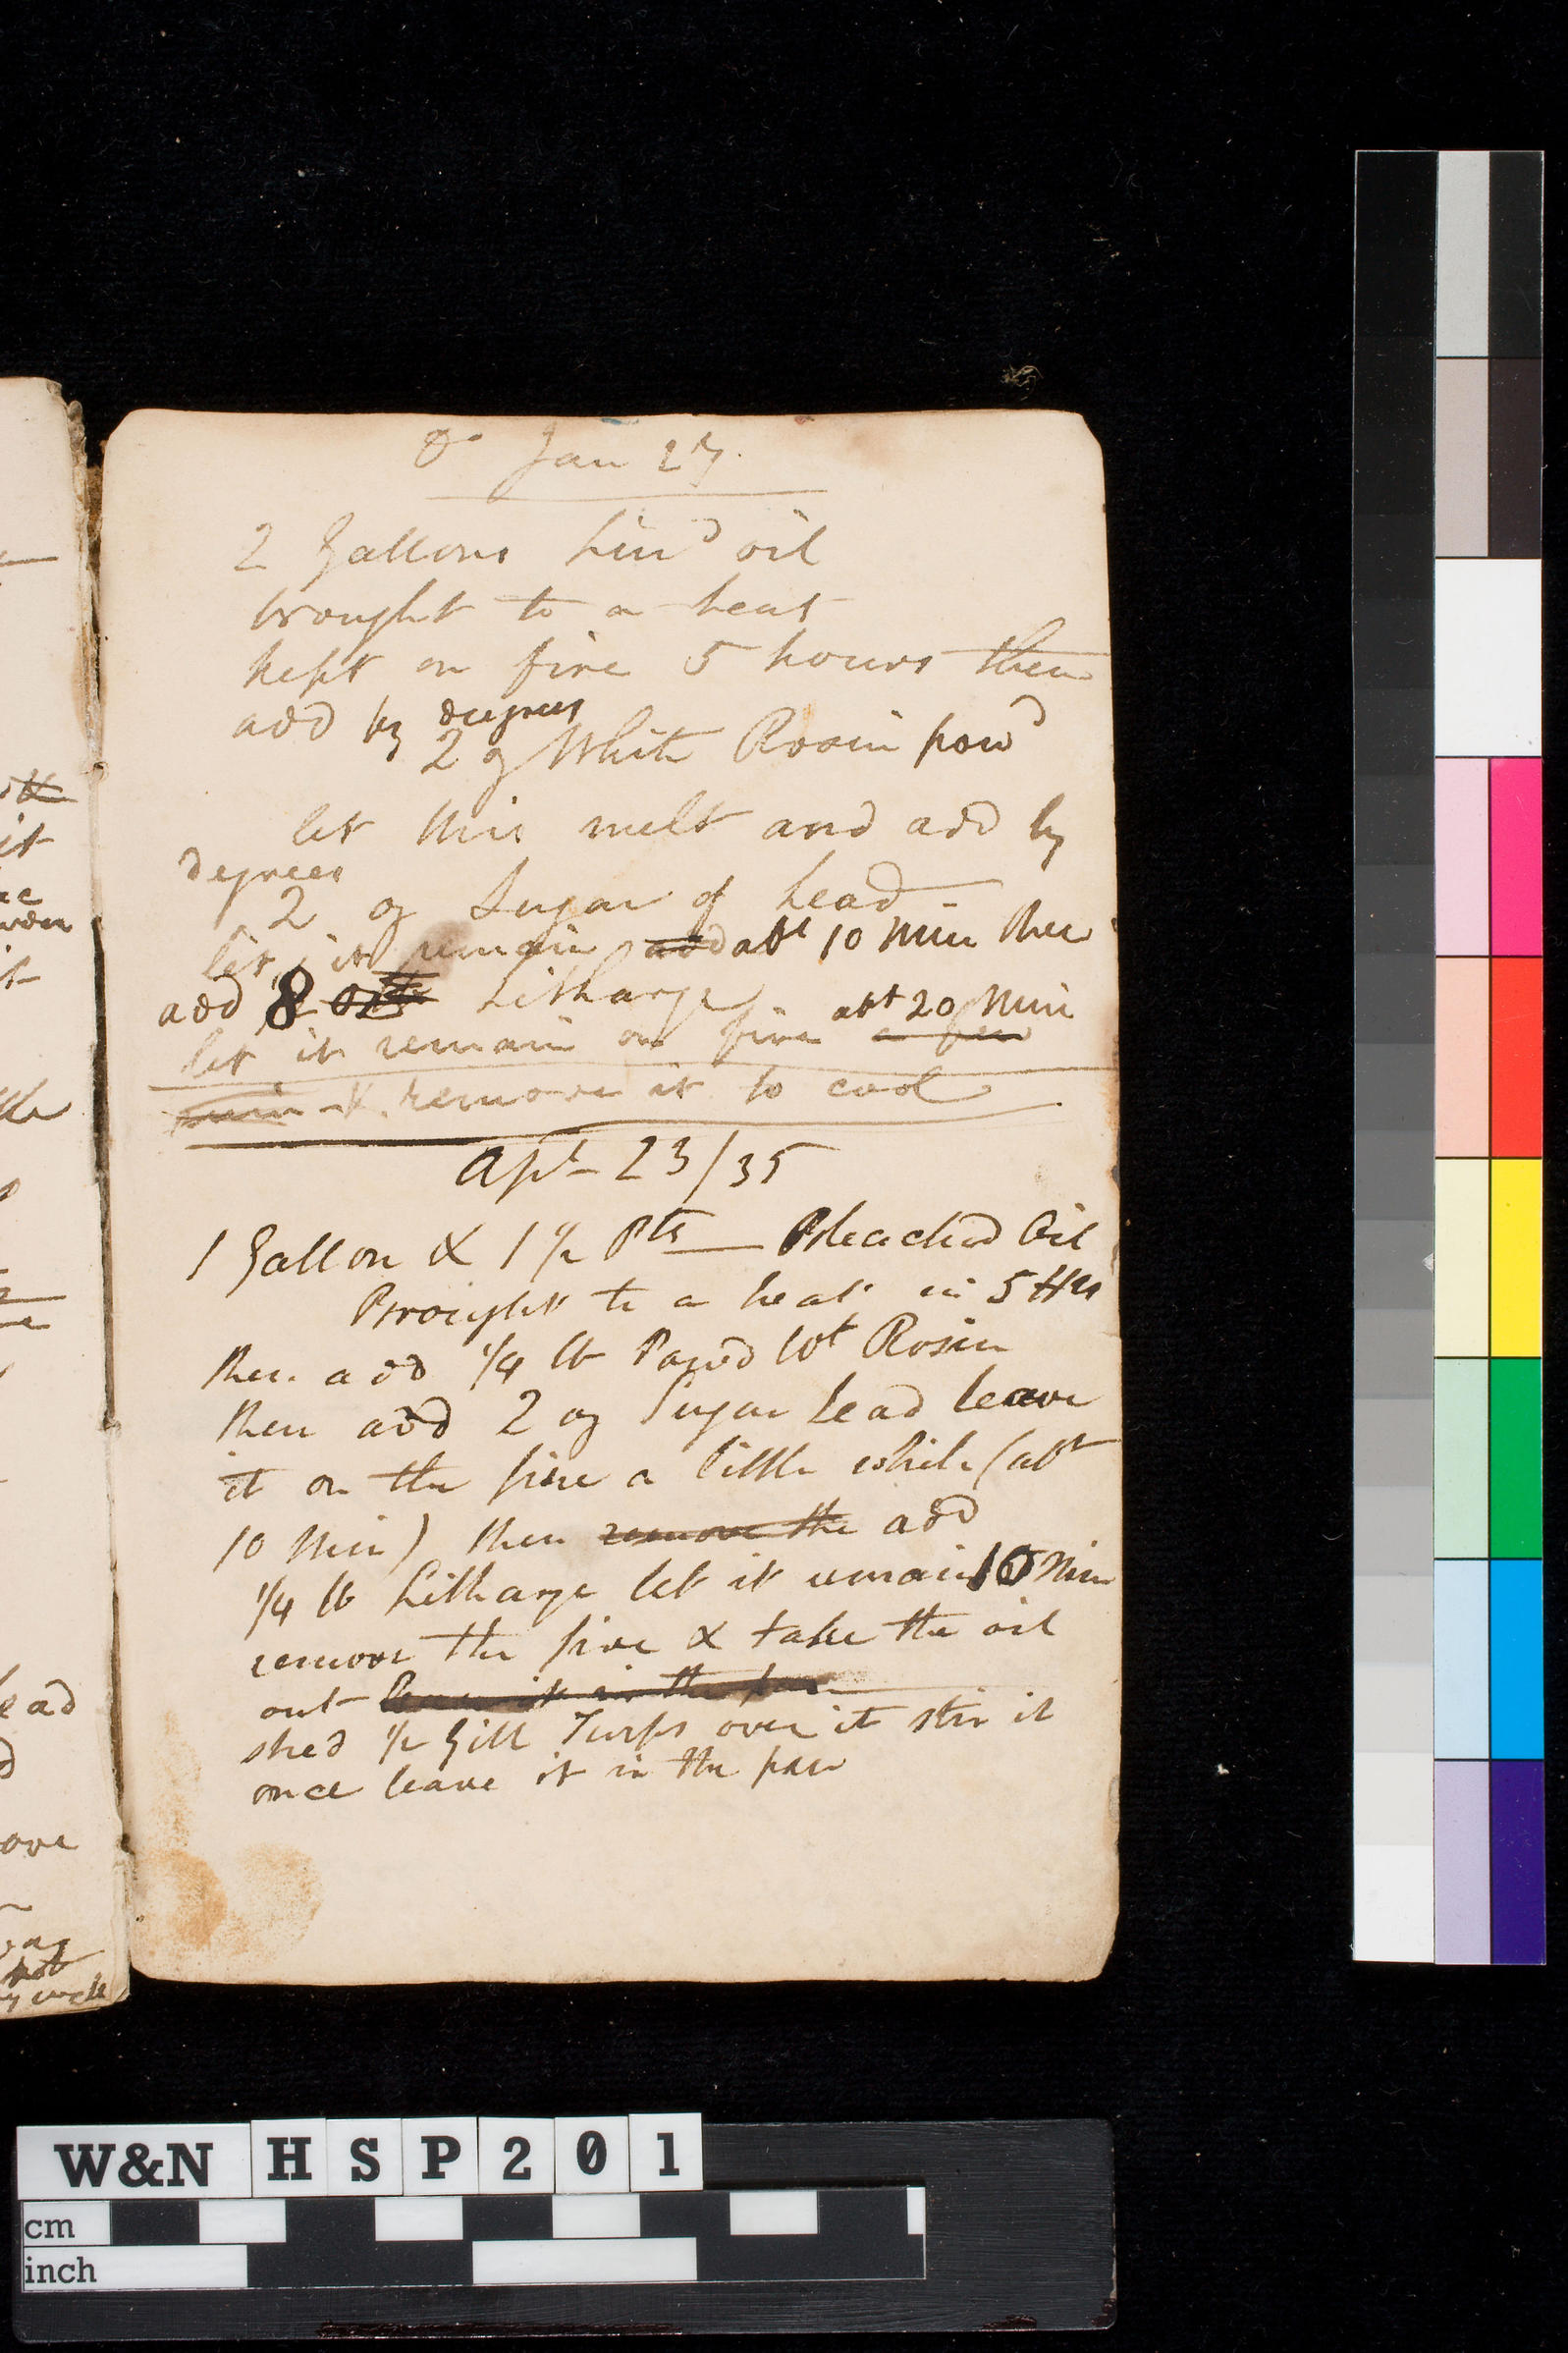 Do Jan 27.
2 Gallons Lind oil
brought to a heat
kept on fire 5 hours then
add by degrees
2 oz White Rosin powd
let this melt and add by
degrees
2 oz Sugar of Lead
let it remain add abt 10 Min then
add 8 Litharge abt 20 Min
let it remain on fire a few
min & remove it to cool
Apl 23/35
1 Gallon & 1 1/2 Pts Bleached Oil
Brought to a heat in 5 Hrs
then add 1/4 lb Powd Wt Rosin
then add 2 oz Sugar Lead leave
it on the fire a little while (abt
10 Min) then remove the add
1/4 lb Litharge let it remain 10 Min
remove the fire & take the oil
out leave it in the pan
shed 1/2 Gill Turps over it stir it
once leave it in the pan
it
ead
ove
W&N HSP201
cm
inch